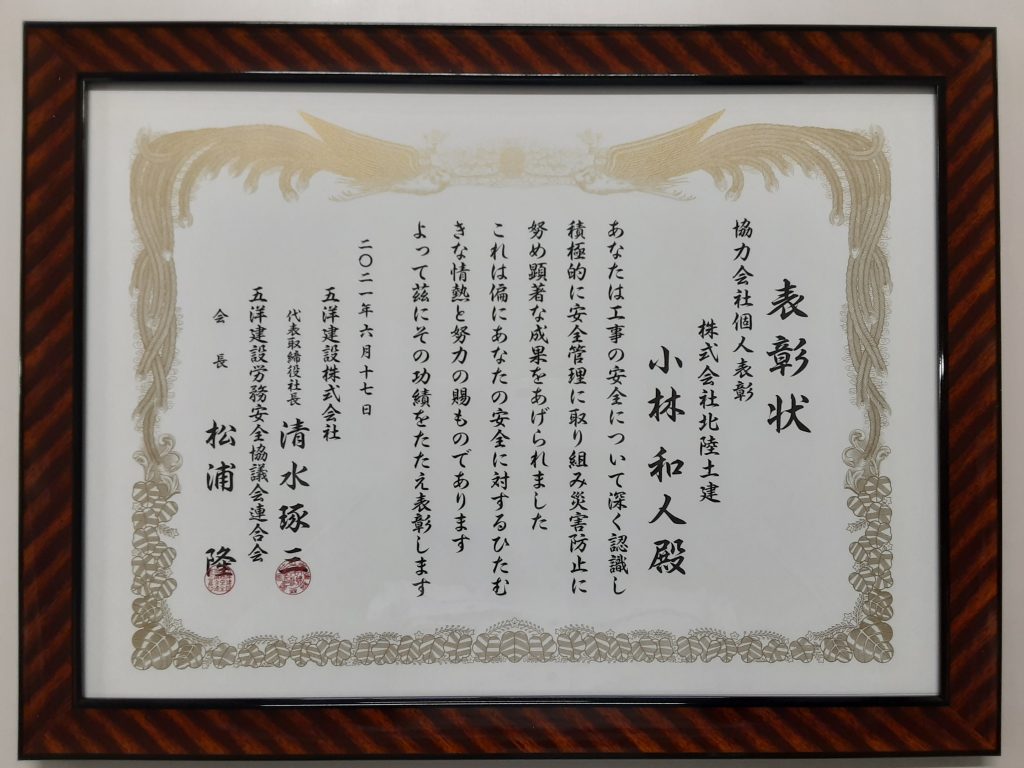 表彰状
協力会社個人表彰
株式会社北陸土建
小林和人殿
あなたは工事の安全について深く認識し
積極的に安全管理に取り組み災害防止に
努め顕著な成果をあげられました
これは偏にあなたの安全に対するひたむ
きな情熱と努力の賜ものであります
よって茲にその功績をたたえ表彰します
二〇二一年六月十七日
五洋建設株式会社
代表取締役社長 清水琢三
五洋建設労務安全協議会連合会
会長 松浦 隆